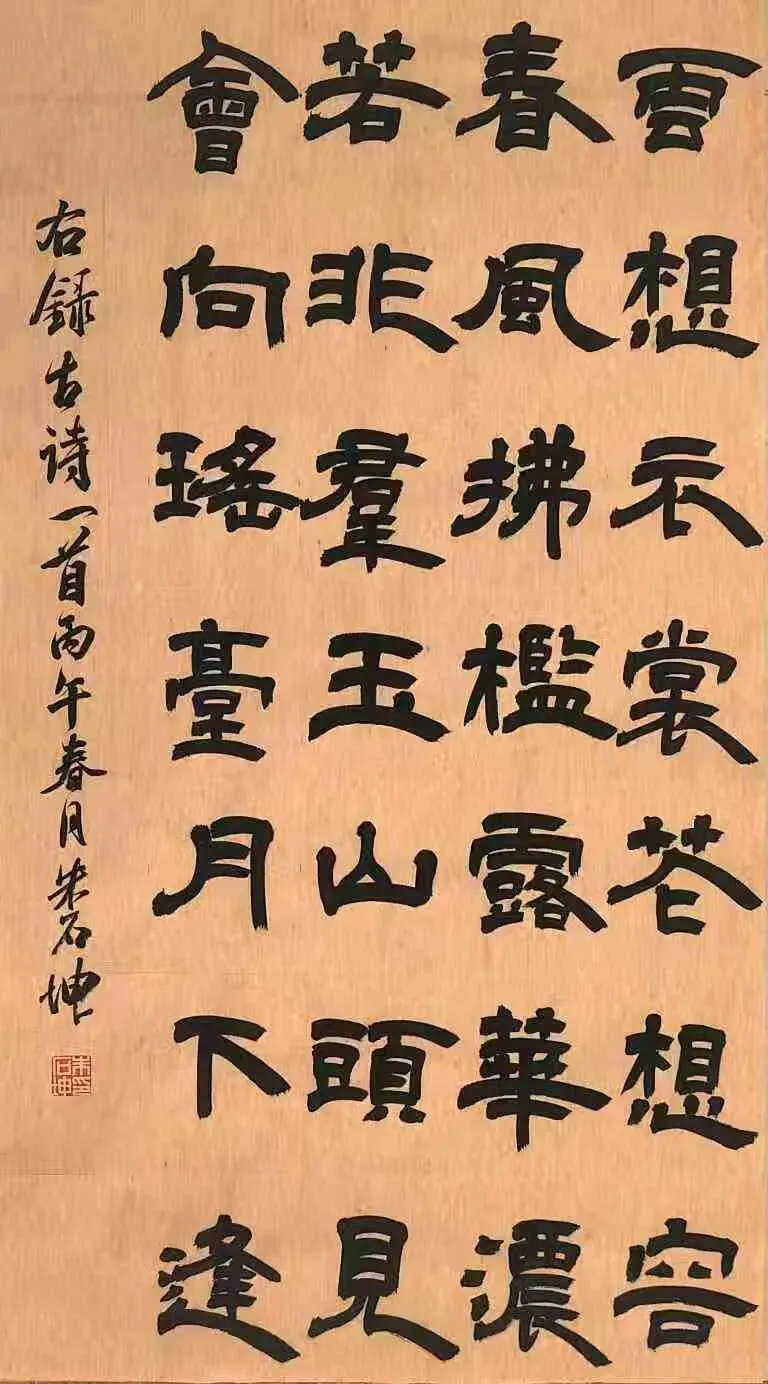 雲想衣裳花想容
春風拂檻露華濃
若非羣玉山頭見
會向瑤臺月下逢
右録古诗一首丙午春月朱石坤
朱石坤印